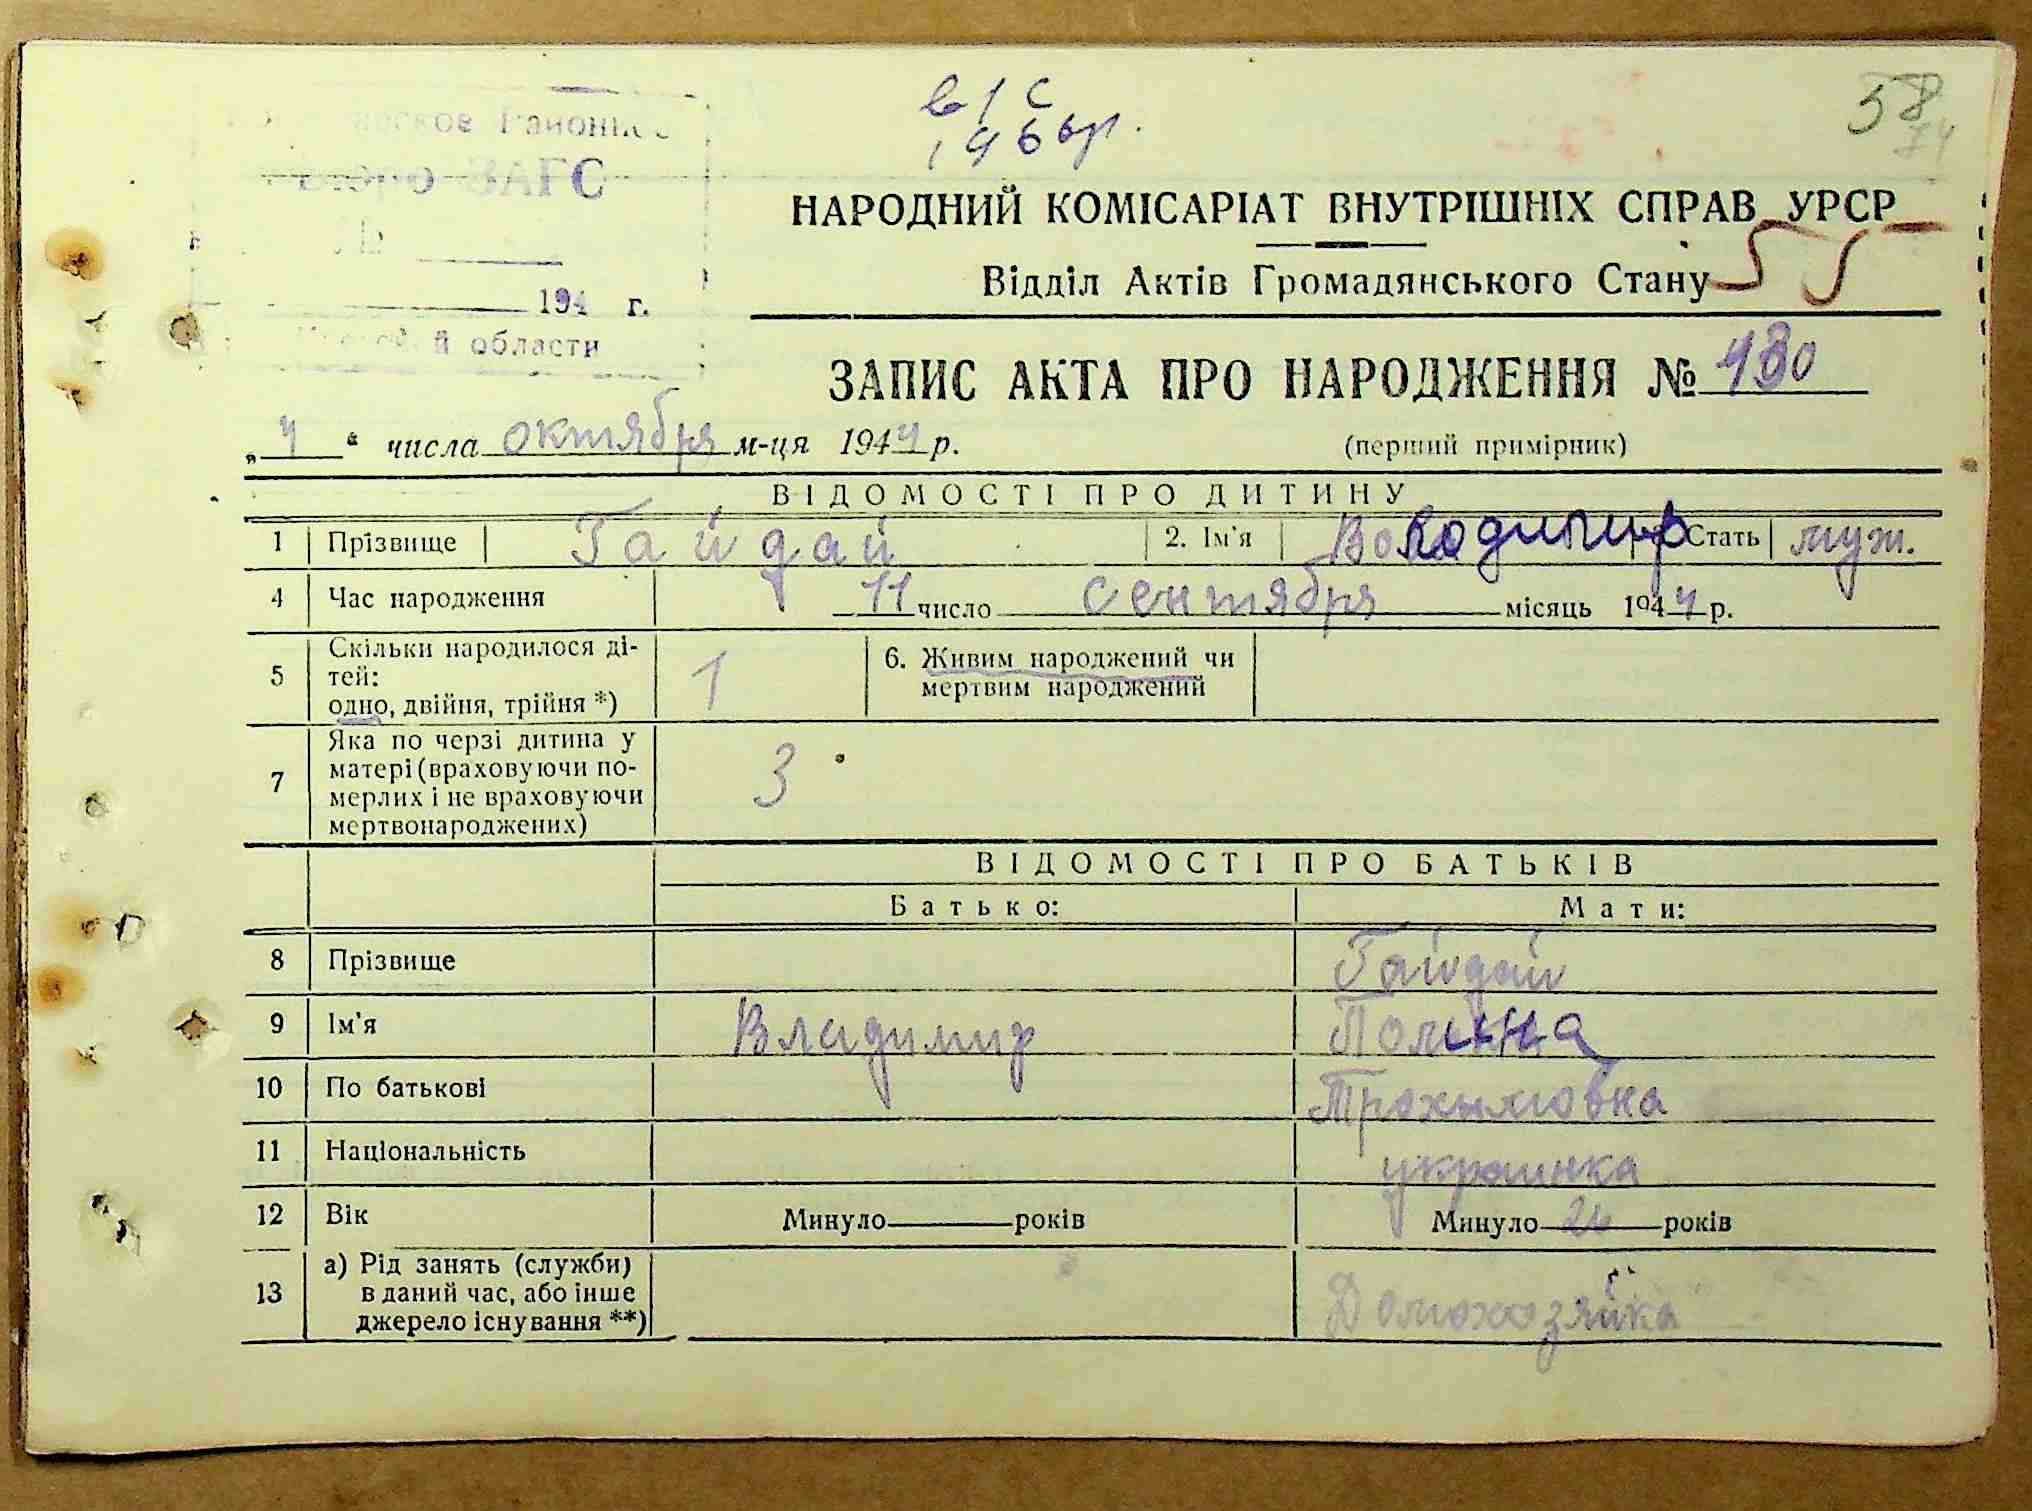 в/с
1966р.
58
74
Бюро ЗАГС
№
194 г.
й области
НАРОДНИЙ КОМІСАРІАТ ВНУТРІШНІХ СПРАВ УРСР
Відділ Актів Громадянського Стану
55
ЗАПИС АКТА ПРО НАРОДЖЕННЯ № 480
„4“ числа октября м-ця 1944 р. (перший примірник)
ВІДОМОСТІ ПРО ДИТИНУ
1 Прізвище Гайдай 2. Ім'я Володимир Стать муж.
4 Час народження 11 число сентября місяць 1944 р.
5 Скільки народилося ді-
тей:
одно, двійня, трійня *)
1
6. Живим народжений чи
мертвим народжений
7 Яка по черзі дитина у
матері (враховуючи по-
мерлих і не враховуючи
мертвонароджених)
3
ВІДОМОСТІ ПРО БАТЬКІВ
Батько: Мати:
8 Прізвище Гайдай
9 Ім'я Владимир Полина
10 По батькові Трохымовна
11 Національність украинка
12 Вік Минуло років Минуло 24 років
13 а) Рід занять (служби)
в даний час, або інше
джерело існування **)
Домохозяйка